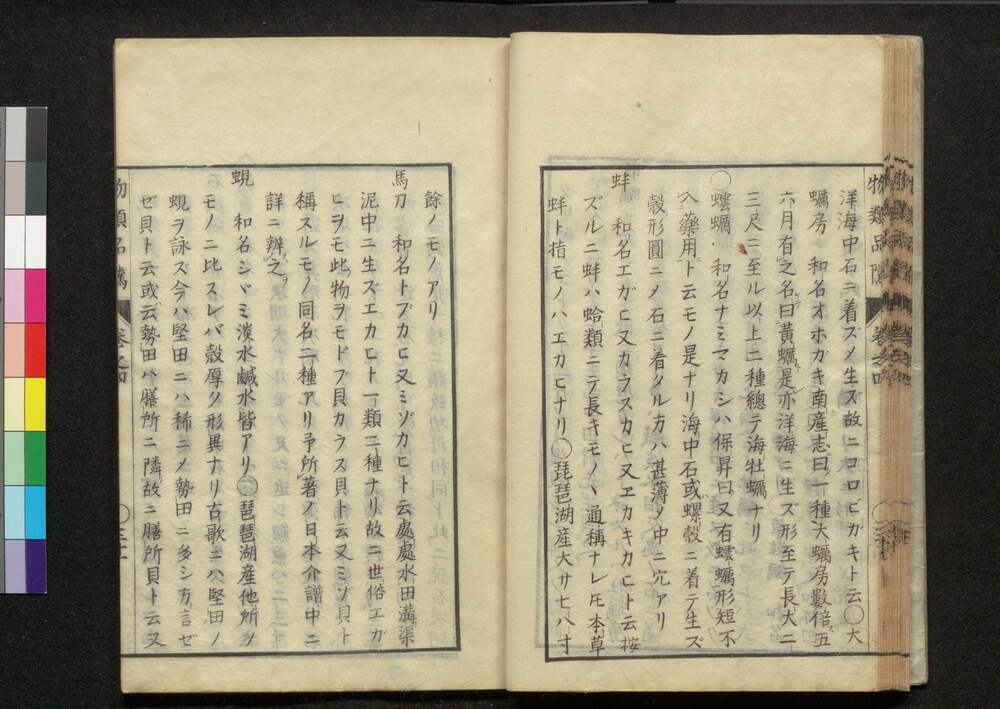 洋海中石ニ着ズメ生ズ故ニコロビガキト云○大
蠣房　和名オホガキ南産志曰一種大蠣房數倍五
六月有之名曰黃蠣是亦洋海ニ生ズ形至テ長大二
三尺ニ至ル以上二種總テ海牡蠣ナリ
○蠔蠣　和名ナミマカシハ保昇曰又有蠔蠣形短不
入藥用ト云モノ是ナリ海中石或螺殼ニ着テ生ズ
殼形圓ニメ石ニ着タルカハ甚薄メ中ニ穴アリ
蚌　和名エガヒ又カラスカヒ又ヱカキカヒト云按
ズルニ蚌ハ蛤類ニテ長キモノヽ通稱ナレ𪜈本草
蚌ト指モノハエカヒナリ○琵琶湖産大サ七八寸
物類品隲　卷之四
餘ノモノアリ
馬刀　和名トブカヒ又ミゾカヒト云處處水田溝渠
泥中ニ生ズエカヒト一類二種ナリ故ニ世俗エガ
ヒヲモ此物ヲモドブ貝カラス貝ト云又ミゾ貝ト
稱スルモノ同名二種アリ予所著ノ日本介譜中ニ
詳ニ辨之
蜆　和名シヾミ淡水鹹水皆アリ○琵琶湖産他所ノ
モノニ比スレバ殼厚ク形異ナリ古歌ニハ堅田ノ
蜆ヲ詠ズ今ハ堅田ニハ稀ニメ勢田ニ多シ方言ゼ
ゼ貝ト云或云勢田ハ膳所ニ隣故ニ膳所貝ト云又
卷之四